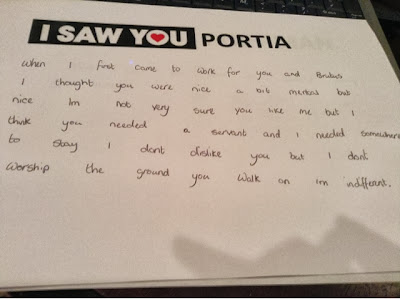 I SAW YOU PORTIA
when I first came to work for you and Brutus
I thought you were nice a bit mental but
nice Im not very sure you like me but I
think you needed a servant and I needed somewhere
to stay I dont dislike you but I dont
worship the ground you walk on Im indifferent.